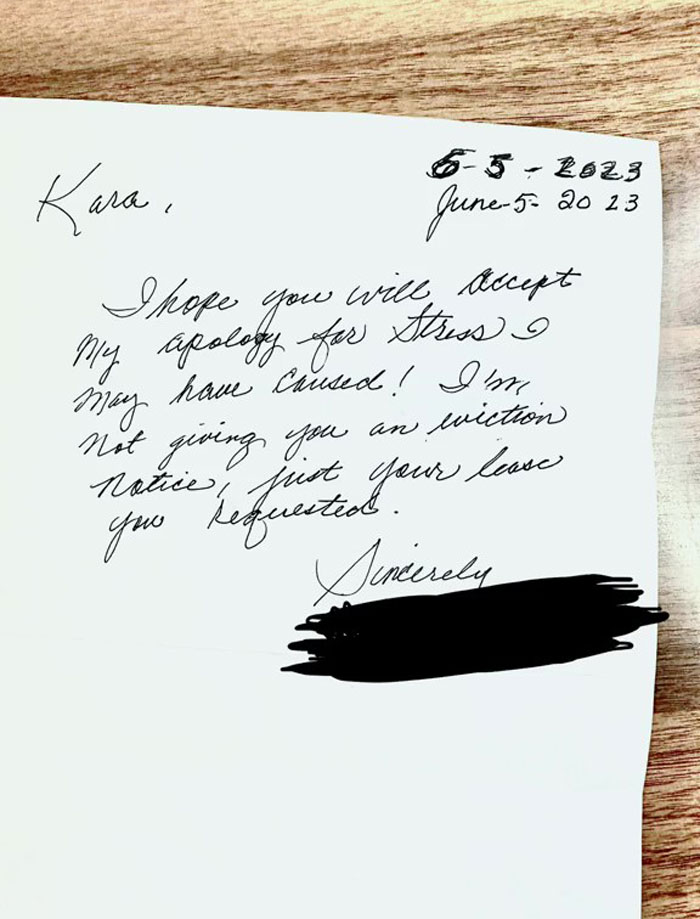 6-5-2023
June-5-2023
Kara,
I hope you will accept
My apology for Stress I
May have caused! I'm,
Not giving you an eviction
Notice, just your lease
you requested.
Sincerely